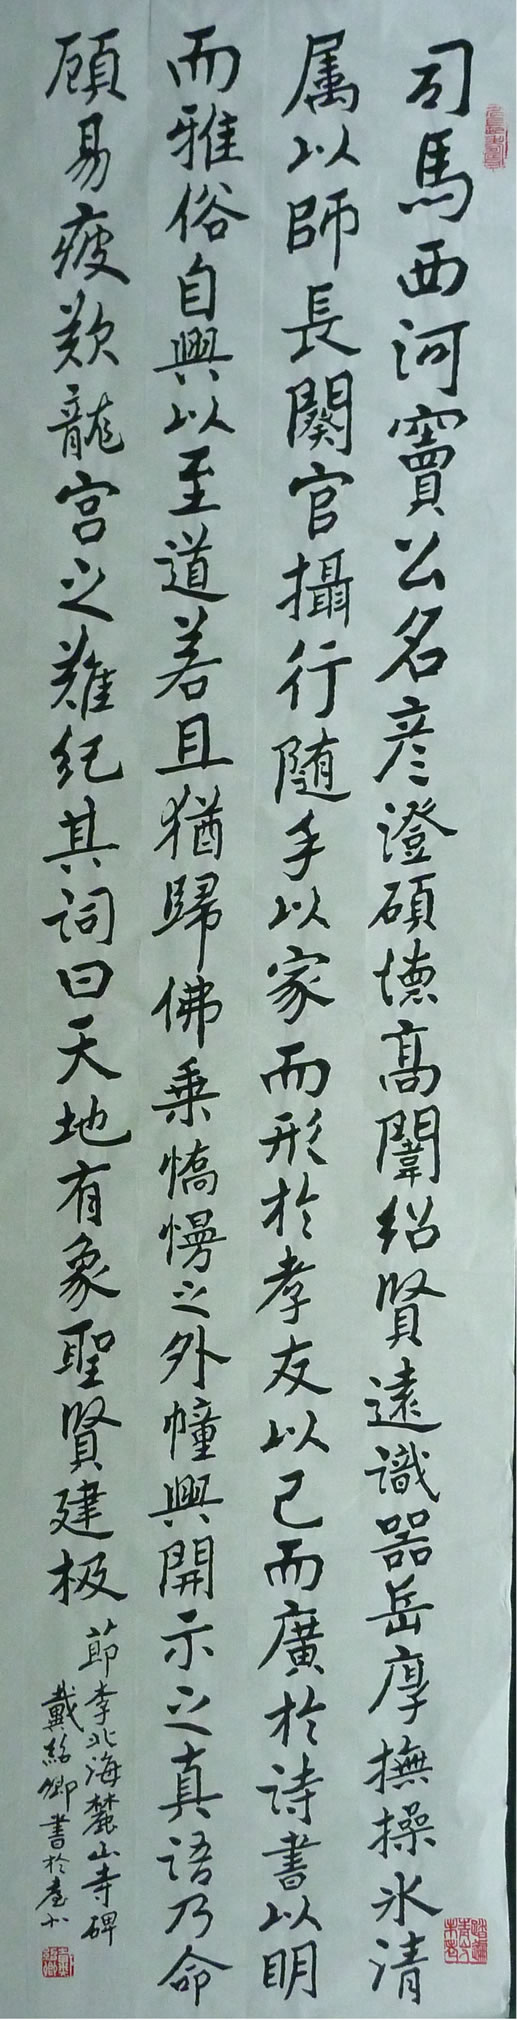 司馬西河竇公名彦澄碩德高闈紹賢遠識器岳厚撫操氷清
属以師長闋官攝行随手以家而形於孝友以己而廣於詩書以明
而雅俗自興以至道若且猶歸佛乗憍慢之外幢興開示之真語乃命
顧易疲欵龍宫之難紀其詞曰天地有象聖賢建极
節李北海麓山寺碑
戴紹卿書於臺北